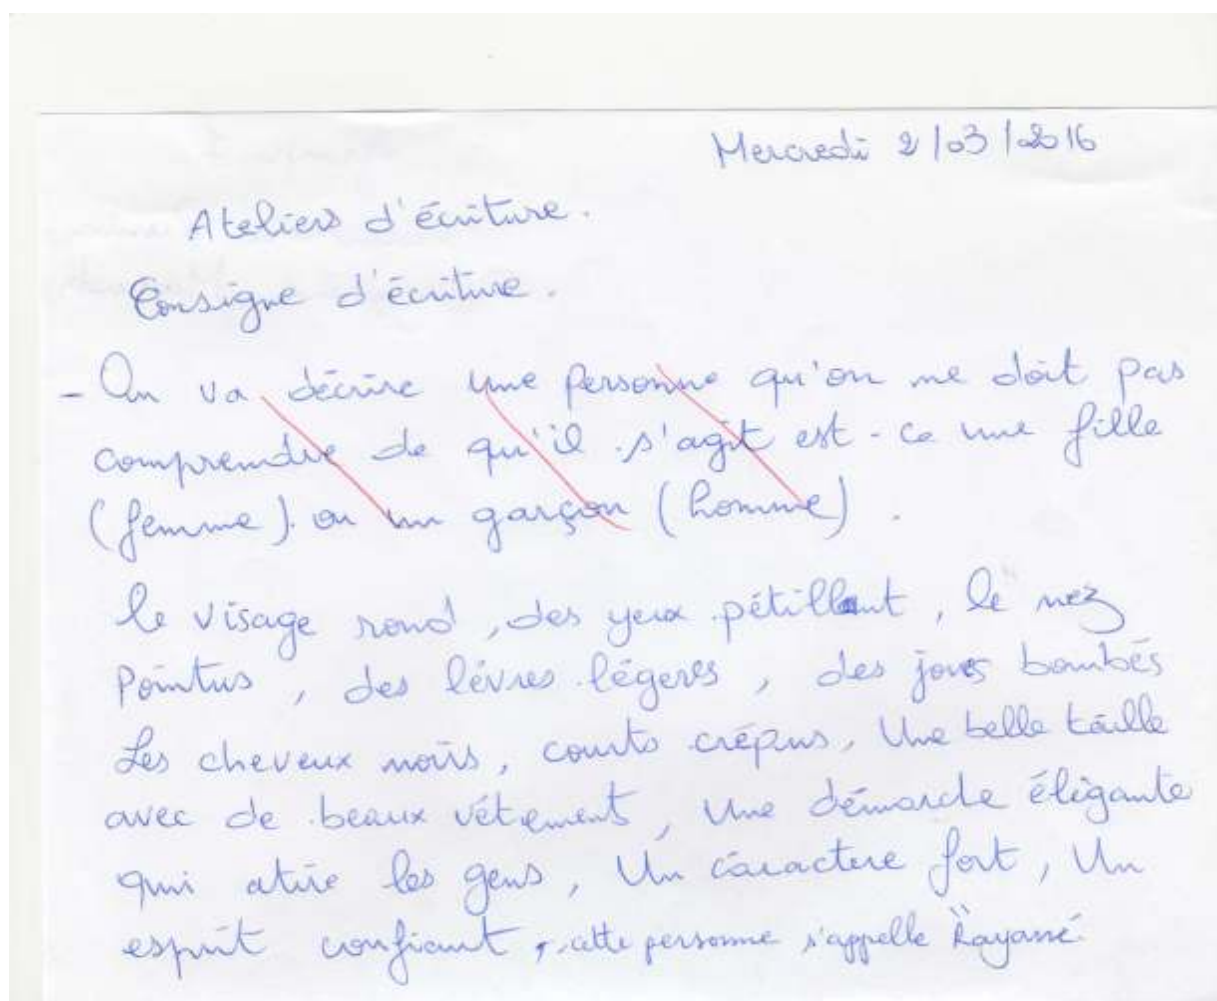 Mercredi 2/03/2016
Ateliers d'écriture.
Consigne d'écriture.
- On va décrire une personne qu'on ne doit pas
comprendre de qu'il s'agit est-ce une fille
(femme) ou un garçon (homme).
le visage rond, des yeux pétillant, le nez
pointus, des lévres légeres, des joues bombés
Les cheveux noirs, courts crépus, Une belle taille
avec de beaux vétement, Une démarche élégante
qui atire les gens, Un caractere fort, Un
esprit confiant, cette personne s'appelle